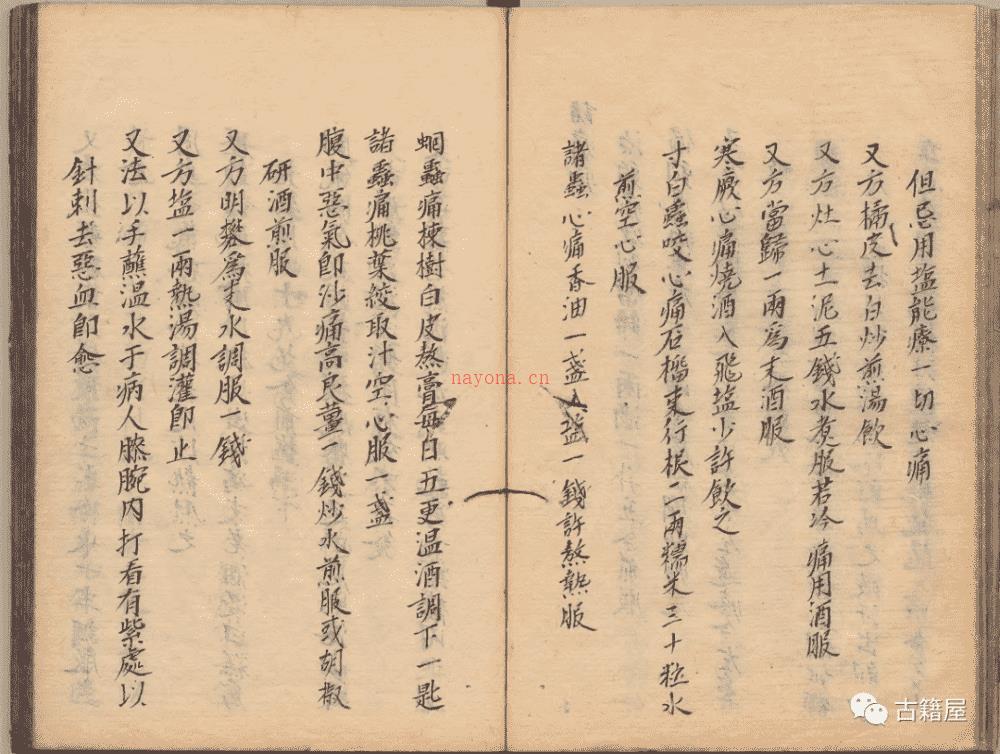 但忌用塩能療一切心痛
又方橘皮去白炒煎湯飲
又方灶心土泥五錢水煑服若冷痛用酒服
又方當歸一兩為末酒服
寒厥心痛燒酒入飛塩少許飲之
寸白蟲咬心痛石榴東行根二兩糯米三十粒水
煎空心服
諸蟲心痛香油一盞入塩一錢許熬熟服
蛔蟲痛楝樹白皮熬膏每日五更温酒調下一匙
諸蟲痛桃葉絞取汁空心服一盞
腹中惡氣即沙痛高良薑一錢炒水煎服或胡椒
研酒煎服
又方明礬為末水調服一錢
又方塩一兩熱湯調灌即止
又法以手蘸温水于病人膝腕内打看有紫處以
針刺去惡血即愈
nayona.cn
古籍屋